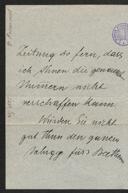 Zeitung so fern, dass
ich Ihnen die genannten
Nummern nicht
verschaffen kann.
Würden Sie nicht
gut thun den ganzen
für